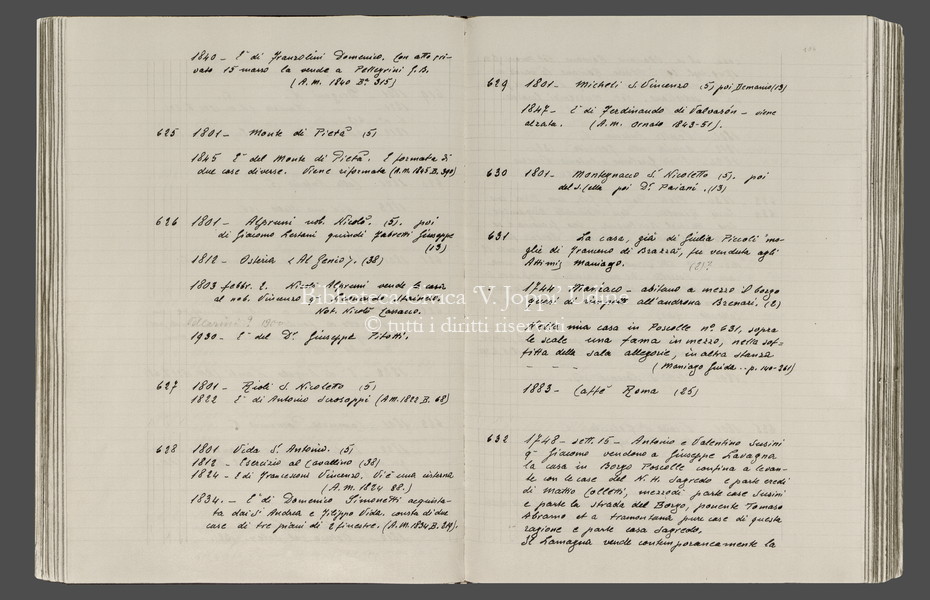 1840 - E' di Franzolini Domenico. Con atto pri-
vato 15 marzo la vende a Pellegrini G.B.
(A.M. 1840 Bª 315)
625 1801 - Monte di Pietà (5)
1845 E' del Monte di Pietà. E' formata di
due case diverse. Viene riformata (A.M. 1845 B. 390)
626 1801 - Alpruni nob. Nicolò. (5). poi
di Giacomo quindi Fabretti Giuseppe
(13)
1812 - Osteria <Al Genio>. (38)
1803 febbr. 2. Nicolò Alpruni vende la casa
al nob. Vincenzo
Not. Nicolò Cassacco.
1930 - E' del Dr. Giuseppe Pitotti.
627 1801 - Rioli S. Nicoletto (5)
1822 E' di Antonio Scrosoppi (A.M. 1822 B. 68)
628 1801 Vida Sr. Antonio. (5)
1812 - Esercizio al Cavallino (38)
1824 - E' di Francesconi Vincenzo. Vi è una cisterna
(A.M. 1824 88.)
1834. - E' di Domenico Simonetti acquista-
ta dai Si Andrea e Filippo Vida. consta di due
case di tre piani di 2 finestre. (A.M. 1834 B. 219).
629 1801 - Micheli S. Vincenzo (5) poi Demanio (13)
1847 - E' di Ferdinando di Valvasòn - viene
alzata. (A.M. Ornato 1843-51).
630 1801 - Montegnacco Sr Nicoletto (5). poi
del S. Cella poi Dr. Paiani. (13)
631 La casa, già di Giulia Piccoli mo-
glie di Francesco di Brazzà, fu venduta agli
Attimis Maniago. (2)?
1744 Maniaco - abitano a mezzo il borgo
all'androna Brenari. (2)
Nella mia casa in Poscolle nº 631, sopra
le scale una fama in mezzo, nella sof-
fitta della sala allegorie, in altra stanza
- - - (Maniago Guida .. p. 140-261)
1883 - Caffè Roma (25)
632 1748 - sett. 15 - Antonio e Valentino Susini
q. Giacomo vendono a Giuseppe Lavagna
la casa in Borgo Poscolle confina a levan-
te con le case del N.H. Sagredo e parte eredi
di Mattio Colletti, mezzodì parte case Susini
e parte la strada del Borgo, ponente Tomaso
Abramo et a tramontana pure case di questa
ragione e parte casa Sagredo.
Il Lamagna vende contemporaneamente la
Biblioteca civica "V. Joppi" Udine
© tutti i diritti riservati